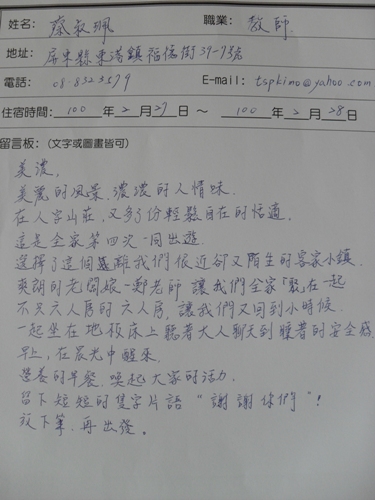 姓名: 蔡淑珮 職業: 教師
地址: 屏東縣東港鎮福信街39-9號
電話: 08 8323579 E-mail: tspkimo@yahoo.com
住宿時間: 100 年 2 月 27 日 ~ 100 年 2 月 28 日
留言板: (文字或圖畫皆可)
美濃,
美麗的風景,濃濃的人情味.
在人字山莊,又多了份輕鬆自在的恬適.
這是全家第四次一同出遊.
選擇了這個離我們很近卻又陌生的客家小鎮.
爽朗的老闆娘-鄭老師 讓我們全家「亂在一起
不只六人房的六人房,讓我們又回到小時候.
一起坐在地板床上聽著大人聊天到睡著的安全感.
早上,在晨光中醒來.
營養的早餐.喚起大家的活力.
留下短短的隻字片語 "謝謝你們"!
放下筆.再出發。